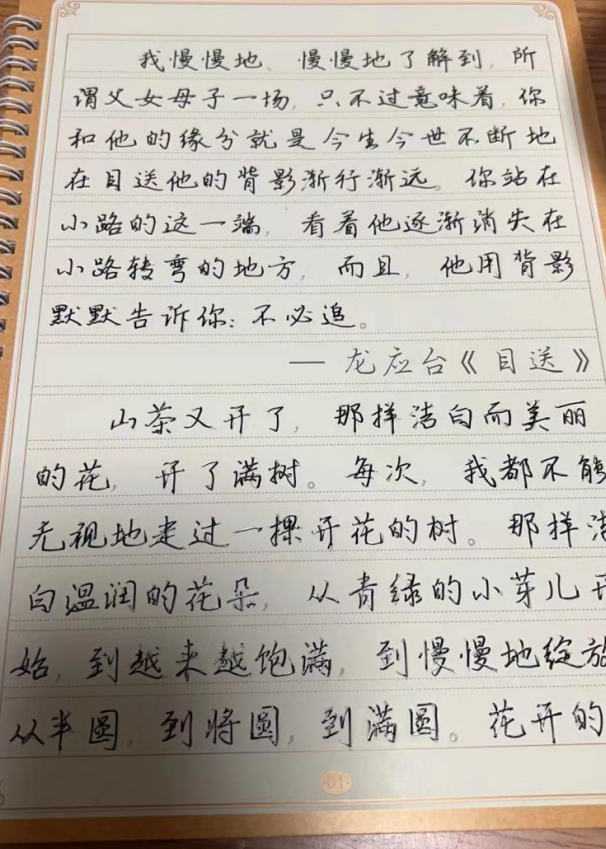 我慢慢地、慢慢地了解到,所
谓父女母子一场,只不过意味着,你
和他的缘分就是今生今世不断地
在目送他的背影渐行渐远。你站在
小路的这一端,看着他逐渐消失在
小路转弯的地方,而且,他用背影
默默告诉你:不必追。
— 龙应台《目送》
山茶又开了,那样洁白而美丽
的花,开了满树。每次,我都不能
无视地走过一棵开花的树。那样洁
白温润的花朵,从青绿的小芽儿开
始,到越来越饱满,到慢慢地绽放
从半圆,到将圆,到满圆。花开的
01